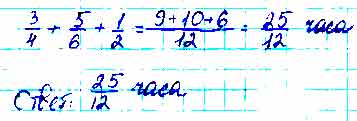 3/4 + 5/6 + 1/2 = 9+10+6/12 = 25/12 часа
Ответ: 25/12 часа